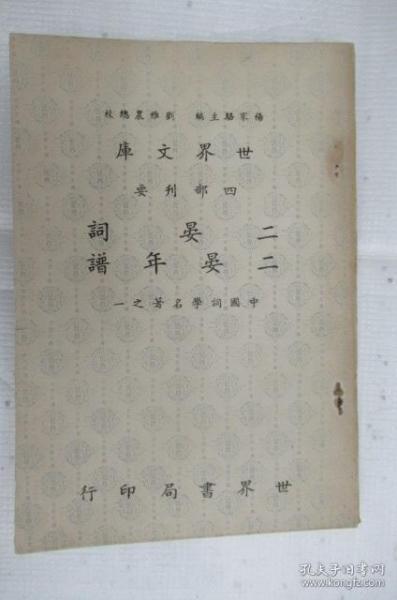 楊家駱主編 劉雅農總校
世界文庫
四部刊要
二晏詞
二晏年譜
中國詞學名著之一
世界書局印行
孔夫子旧书网
www.kongfz.com